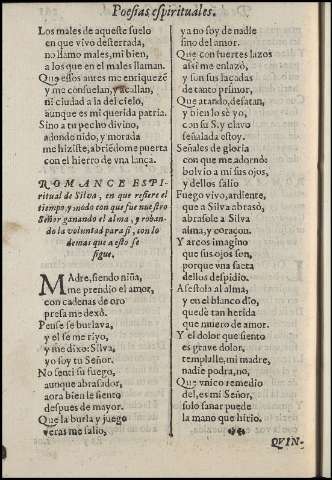 Poesias espirituales.
Los males de aqueste suelo
en que vivo desterrada,
no llamo males, mi bien,
a los que en el males llaman.
Que essos antes me enriquezē
y me consuelan, y callan,
ni ciudad a la del cielo,
aunque es mi querida patria.
Sino a tu pecho divino,
adonde nido, y morada
me hiziste, abriédome puerta
con el hierro de vna lança.
ROMANCE ESPI-
ritual de Silva, en que refiere el
tiempo, y modo con que fue nuestro
Señor ganando el alma, y roban-
do la voluntad para si, con lo
demas que a esto se
sigue.
MAdre, siendo niña,
me prendio el amor,
con cadenas de oro
presa me dexò.
Pense se burlava,
y el se me riyo,
y me dixo: Silva,
yo soy tu Señor.
No senti su fuego,
aunque abrasador,
aora bien le siento
despues de mayor.
Que la burla y juego
veras me salio,
ya no soy de nadie
sino del amor.
Que con fuertes lazos
alsi me enlazò,
y son sus laçadas
de tanto primor,
Que atando, desatan,
y bien lo sè yo,
con su S, y clavo
señalada estoy.
Señales de gloria
con que me adornò:
bolvio a mi sus ojos,
y dellos salio
Fuego vivo, ardiente,
que a Silva abrasò,
abrasole a Silva
alma, y coraçon.
Y arcos imagino
que sus ojos son,
porque vna saeta
dellos despidio.
Asestola al alma,
y en el blanco dio,
quedè tan herida
que muero de amor.
Y el dolor que siento
es grave dolor,
templalle, mi madre,
nadie podra, no,
Que vnico remedio
del, es mi Señor,
solo sanar puede
la mano que hirio.
QVIN-